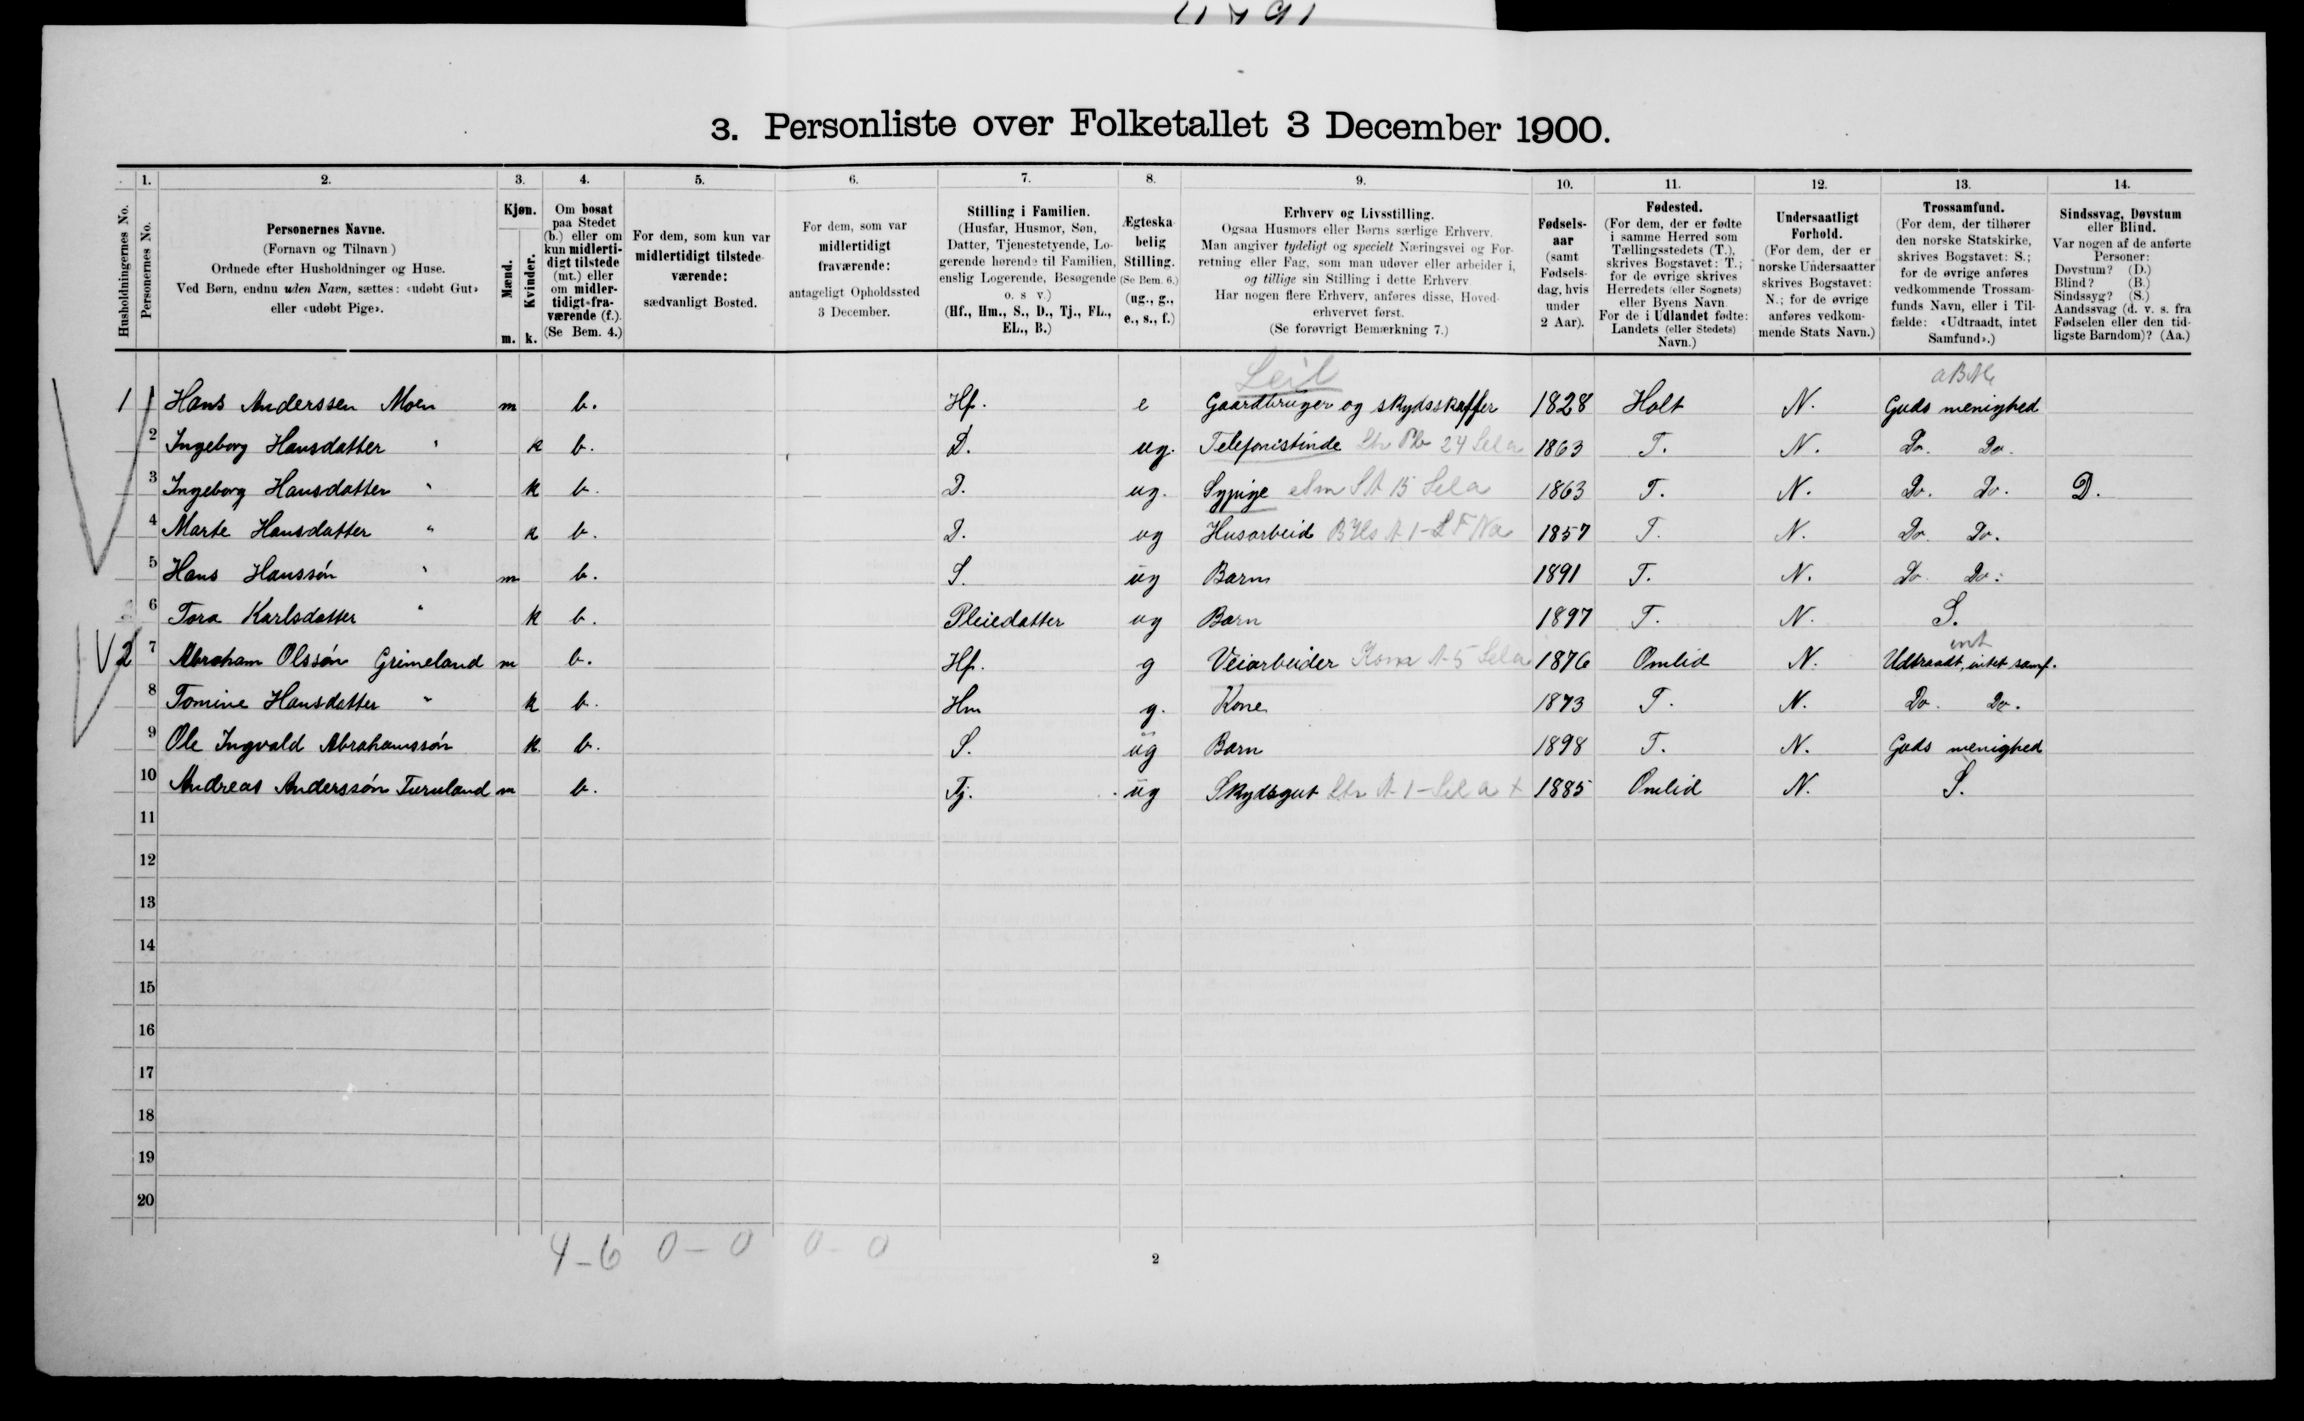 3. Personliste over Folketallet 3 December 1900.
Husholdningernes No.
1.
Personernes No.
2.
Personernes Navne.
(Fornavn og Tilnavn)
Ordnede efter Husholdninger og Huse.
Ved Børn, endnu uden Navn, sættes: «udøbt Gut»
eller «udøbt Pige».
3.
Kjøn.
Mænd.
Kvinder.
m. k.
4.
Om bosat
paa Stedet
(b.) eller om
kun midlerti-
digt tilstede
(mt.) eller
om midler-
tidigt fra-
værende (f.).
(Se Bem. 4.)
5.
For dem, som kun var
midlertidigt tilstede-
værende:
sædvanligt Bosted.
6.
For dem, som var
midlertidigt
fraværende:
antageligt Opholdssted
3 December.
7.
Stilling i Familien.
(Husfar, Husmor, Søn,
Datter, Tjenestetyende, Lo-
gerende hørende til Familien,
enslig Logerende, Besøgende
o. s v.)
(Hf., Hm., S., D., Tj., FL.,
EL., B.)
8.
Ægteska-
belig
Stilling.
(Se Bem. 6.)
(ug., g.,
e., s., f.)
9.
Erhverv og Livsstilling.
Ogsaa Husmors eller Børns særlige Erhverv.
Man angiver tydeligt og specielt Næringsvei og For-
retning eller Fag, som man udøver eller arbeider i,
og tillige sin Stilling i dette Erhverv
Har nogen flere Erhverv, anføres disse, Hoved-
erhvervet først.
(Se forøvrigt Bemærkning 7.)
10.
Fødsels-
aar
(samt
Fødsels-
dag, hvis
under
2 Aar).
11.
Fødested.
(For dem, der er fødte
i samme Herred som
Tællingsstedets (T.),
skrives Bogstavet: T.;
for de øvrige skrives
Herredets (eller Sognets)
eller Byens Navn
For de i Udlandet fødte:
Landets (eller Stedets)
Navn.)
12.
Undersaatligt
Forhold.
(For dem, der er
norske Undersaatter
skrives Bogstavet:
N.; for de øvrige
anføres vedkom-
mende Stats Navn.)
13.
Trossamfund.
(For dem, der tilhører
den norske Statskirke,
skrives Bogstavet: S.;
for de øvrige anføres
vedkommende Trossam-
funds Navn, eller i Til-
fælde: «Udtraadt, intet
Samfund».)
14.
Sindssvag, Døvstum
eller Blind.
Var nogen af de anførte
Personer:
Døvstum? (D.)
Blind? (B.)
Sindssyg? (S.)
Aandssvag (d. v. s. fra
Fødselen eller den tid-
ligste Barndom)? (Aa.)
1 1 Hans Anderssen Moen m b. Hf. e Gaardbruger og skydsskaffer 1828 Holt N. Guds menighed
2 Ingeborg Hansdatter " k b. D. ug. Telefonistinde 1863 T. N. Do. Do.
3 Ingeborg Hansdatter " k b. D. ug. Sypige 1863 T. N. Do. Do. D.
4 Marte Hansdatter " k b. D. ug Husarbeid 1857 T. N. Do. Do.
5 Hans Hanssøn " m b. S. ug Barn 1891 T. N. Do. Do.
6 Tora Karlsdatter " k b. Pleiedatter ug Barn 1897 T. N. S.
2 7 Abraham Olssøn Grimeland m b. Hf. g Veiarbeider 1876 Omlid N. Udtraadt, intet samf.
8 Tomine Hansdatter " k b. Hm g. Kone 1873 T. N. Do. Do.
9 Ole Ingvald Abrahamssøn k b. S. ug Barn 1898 T. N. Guds menighed
10 Andreas Anderssøn m b. Tj. ug Skydsgut 1885 Omlid N. S.
11
12
13
14
15
16
17
18
19
20
4-6 0-0 0-0
2